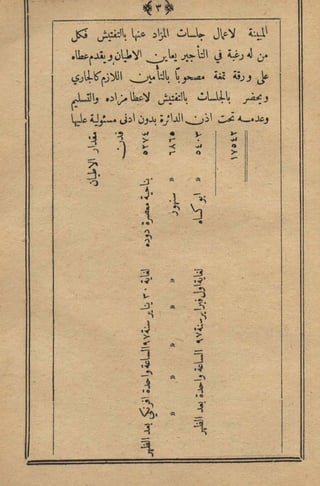 ﴿ ٣ ﴾
المبينة لاعمال جلسات المزاد عنها بالتفتيش فكل
من له رغبة فى التأجير يعاين الاطيان ويقدم عطاه
على ورقة تمغة مصحوباً بالتأمين اللازم كالجارى
ويحضر بالجلسات بالتفتيش لاعطا مزاده والتسليم
وعدمه تحت اذن الدائرة بدون ادنى مسئولية عليها
مقدار الاطيان
فدن
٥٢٧٤ بناحية معصرة دوده لغاية ٣٠ يناير سنة ٩٧ الساعة واحدة افرنكى بعد الظهر
٦٨٦٥ » سنهور » » » » »
٥٤٠٣ » ابو كساه لغاية اول فبراير سنة ٩٧ الساعة واحدة بعد الظهر
١٧٥٤٢